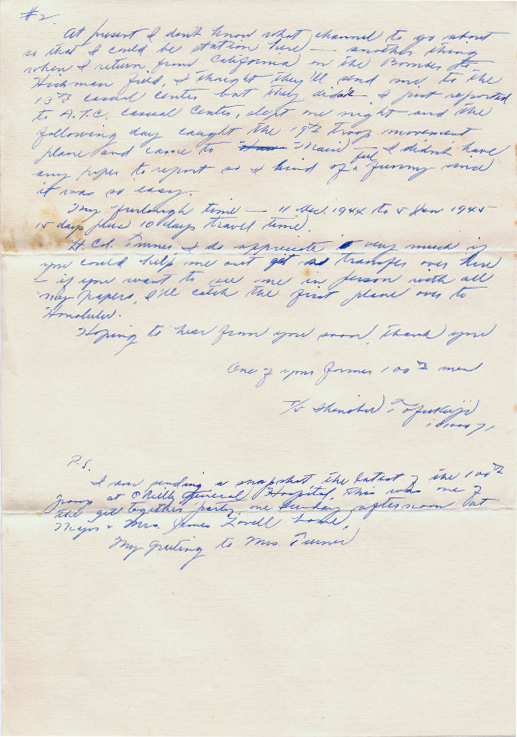 #2.
At present I don't know what channel to go about
so that I could be station here — another thing
when I return from California on the Bomber to
Hickman field, I thought they'll send me to the
13th casual center but they didn't. I just reported
to A.T.C. casual center, slept one night and the
following day caught the 19th troop movement
plane and came to Maui I didn't have
any paper to report so I kind of feel funny since
it was so easy.
My furlough time — 11 Dec. 1944 to 5 Jan 1945
15 days plus 10 days travel time.
Lt Col. Turner I do appreciate very much if
you could help me out get transfer over here
— if you want to see me in person with all
my papers, I'll catch the first plane over to
Honolulu.
Hoping to hear from you soon, thank you
One of your former 100th men
T/5
P.S.
I am sending a snapshot the latest of the 100th
group at O'Reilly General Hospital, this was one of
the get together party, one Sunday afternoon at
Major & Mrs. James Lovell home.
My greeting to Mrs Turner